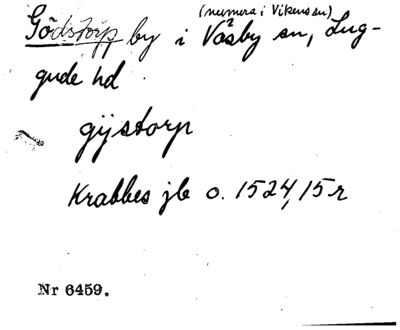 (numera i Vikens sn)
Gödstorp by i Väsby sn, Lug-
gude hd
gijstorp
Krabbes jb o. 1524, 15 r
Nr 6459.